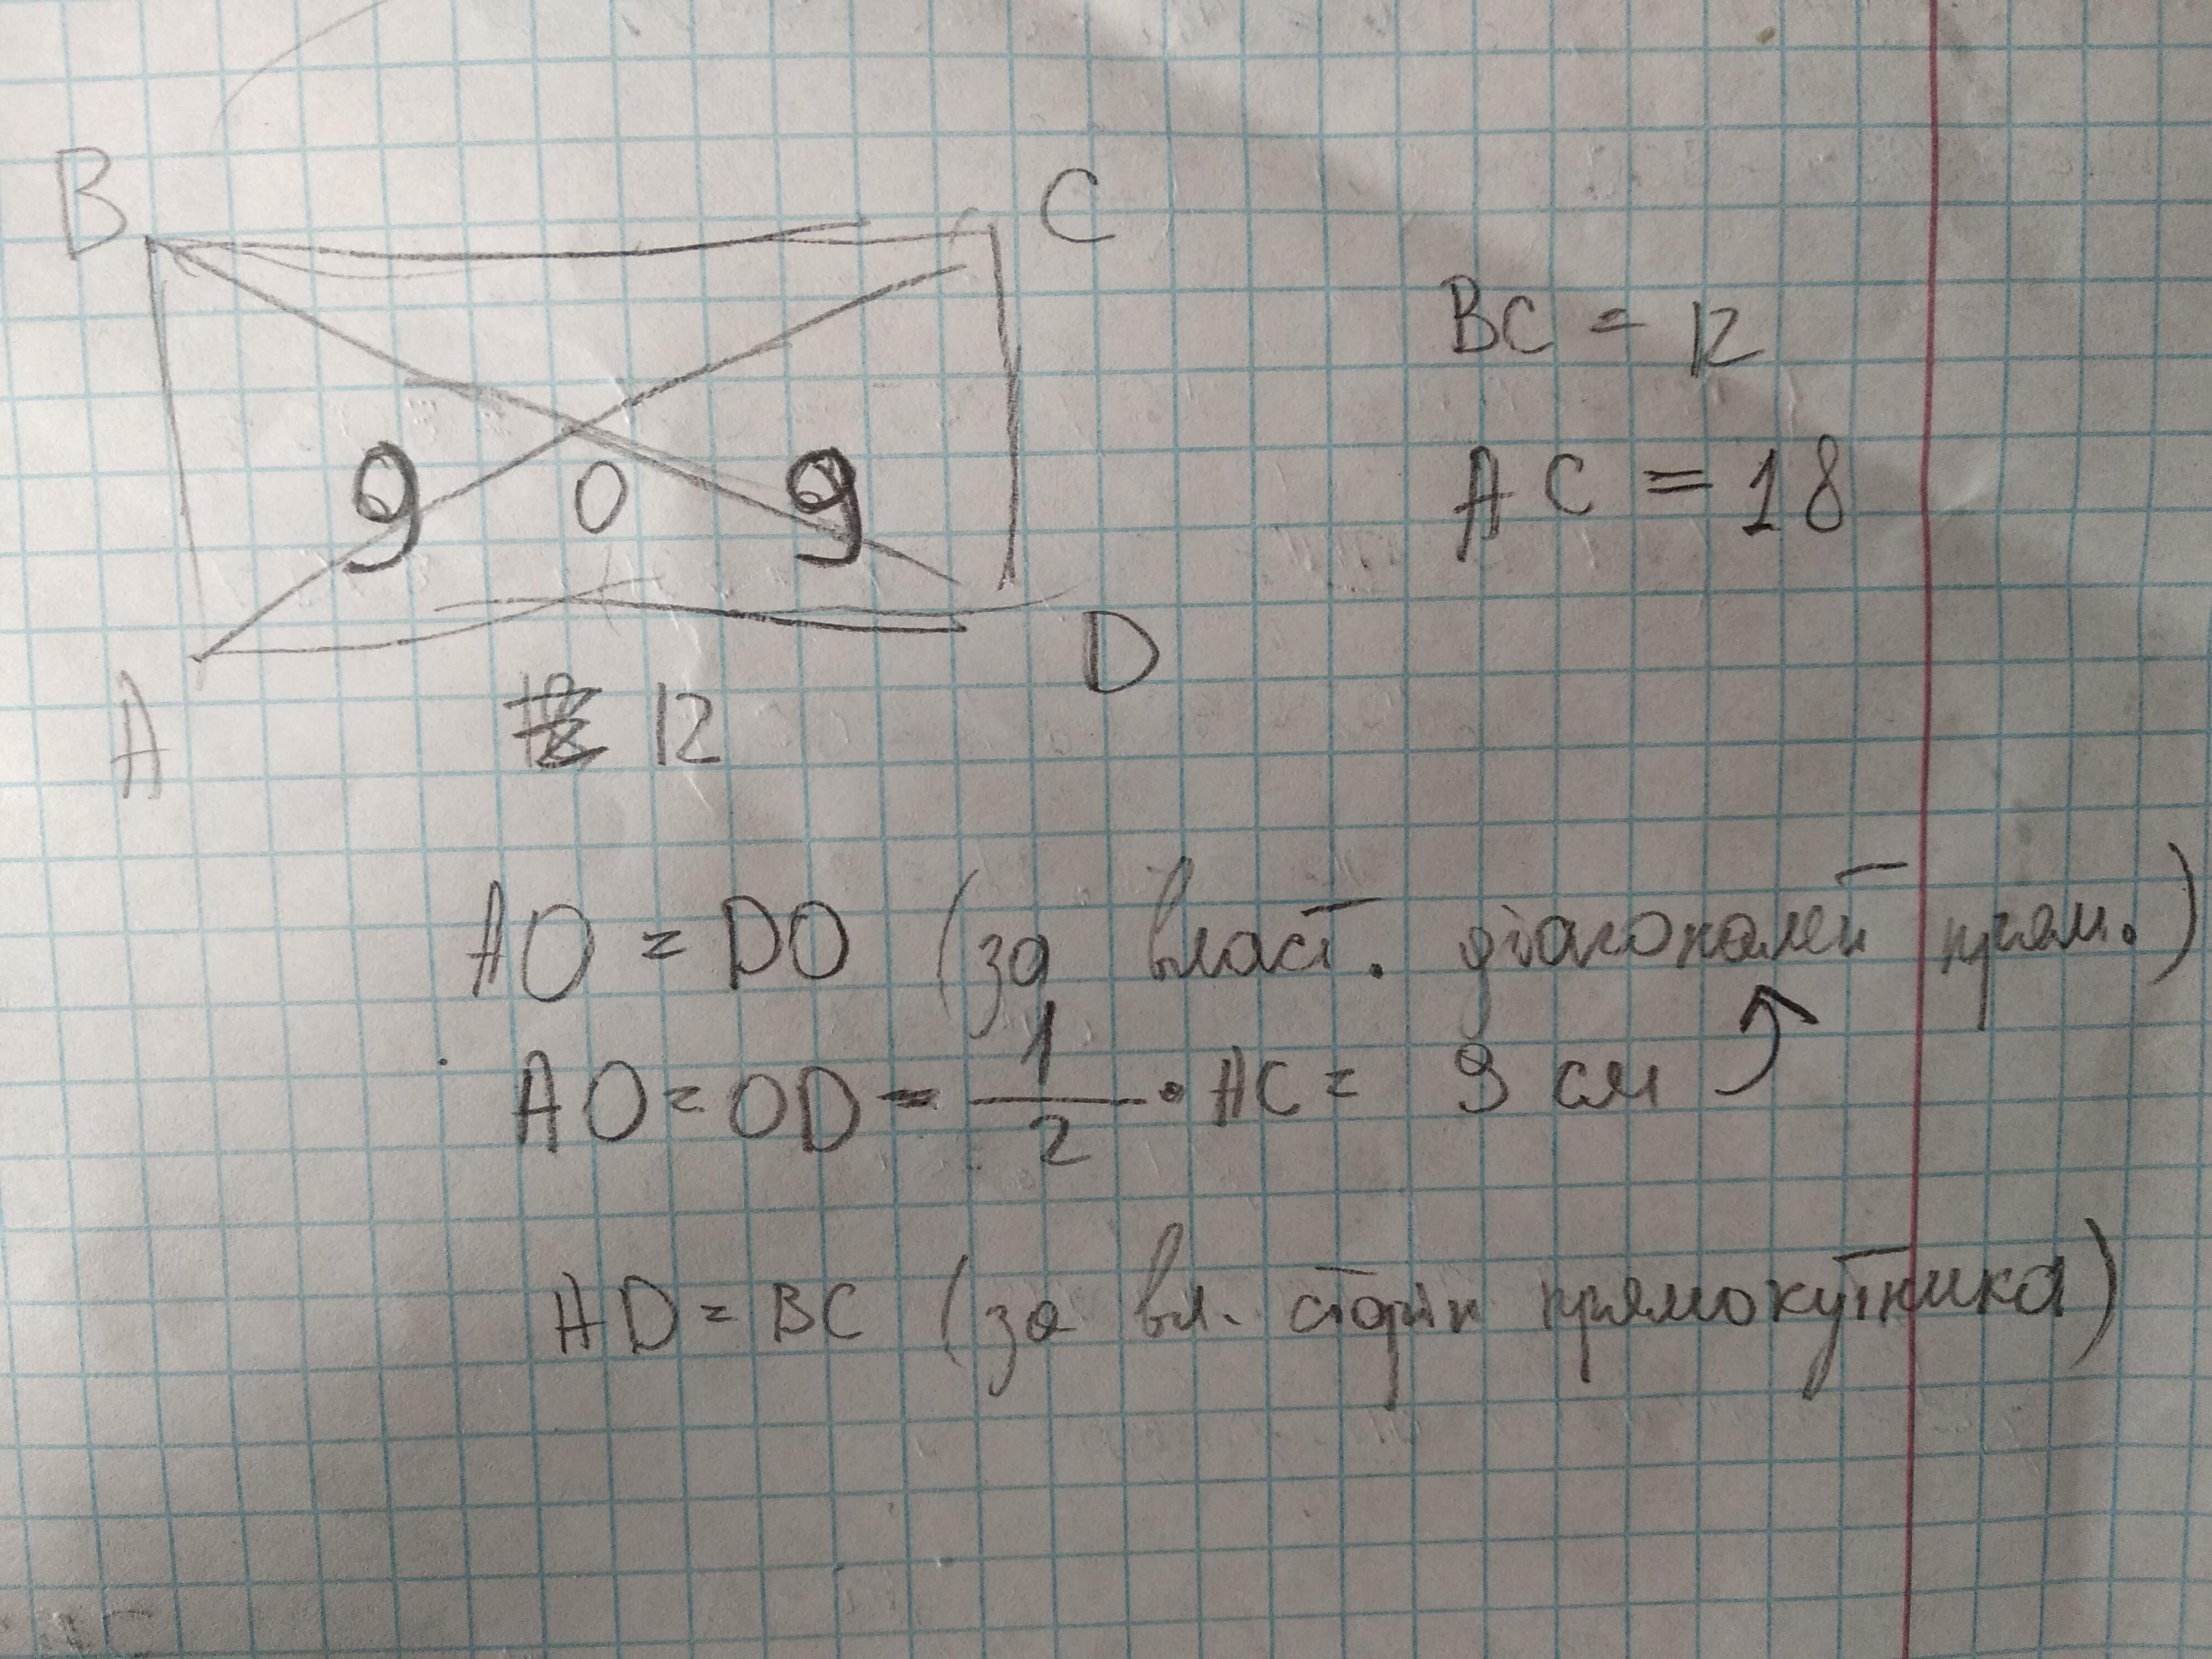 B C
BC = 12
AC = 18
9 O 9
A D
12
AO = DO (за власт. діагоналей прям.)
AO = OD = 1/2 • AC = 9 см
AD = BC (за вл. сторін прямокутника)